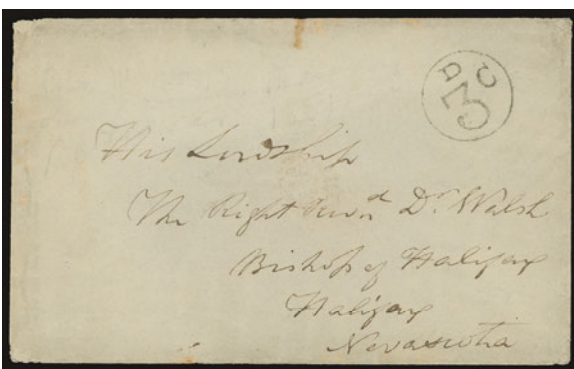 D C
3
His Lordship
The Right Revnd Dr. Walsh
Bishop of Halifax
Halifax
Novascotia